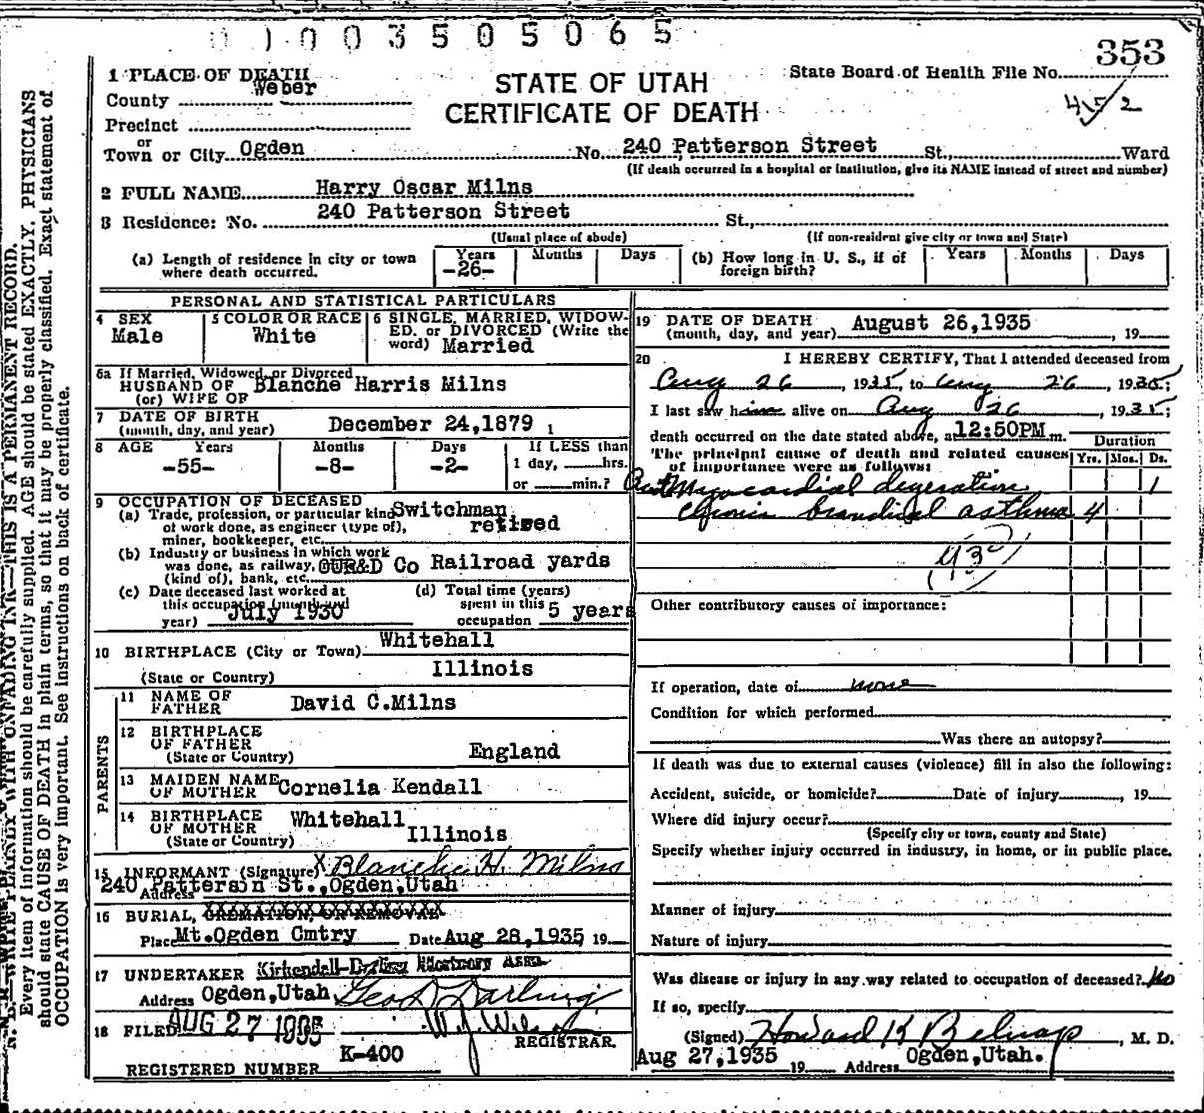 01003505065
353
1 PLACE OF DEATH
County Weber
STATE OF UTAH
CERTIFICATE OF DEATH
State Board of Health File No.
452
Precinct
or
Town or City Ogden No. 240 Patterson Street St., Ward
(If death occurred in a hospital or institution, give its NAME instead of street and number)
2 FULL NAME Harry Oscar Milns
3 Residence: No. 240 Patterson Street St.,
(Usual place of abode) (If non-resident give city or town and State)
(a) Length of residence in city or town where death occurred. Years -26- Months Days (b) How long in U. S., if of foreign birth? Years Months Days
PERSONAL AND STATISTICAL PARTICULARS
4 SEX Male
5 COLOR OR RACE White
6 SINGLE, MARRIED, WIDOWED, or DIVORCED (Write the word) Married
6a If Married, Widowed, or Divorced
HUSBAND OF Blanche Harris Milns
(or) WIFE OF
7 DATE OF BIRTH
(month, day, and year) December 24,1879 1
8 AGE Years Months Days If LESS than
-55- -8- -2- 1 day, hrs.
or min.?
9 OCCUPATION OF DECEASED
(a) Trade, profession, or particular kind Switchman
of work done, as engineer (type of), retired
miner, bookkeeper, etc.
(b) Industry or business in which work
was done, as railway, OUR&D Co Railroad yards
(kind of), bank, etc.
(c) Date deceased last worked at
this occupation (month and
year) July 1930
(d) Total time (years)
spent in this
occupation 5 years
10 BIRTHPLACE (City or Town) Whitehall
(State or Country) Illinois
PARENTS
11 NAME OF
FATHER David C.Milns
12 BIRTHPLACE
OF FATHER
(State or Country) England
13 MAIDEN NAME
OF MOTHER Cornelia Kendall
14 BIRTHPLACE
OF MOTHER Whitehall
(State or Country) Illinois
15 INFORMANT (Signature) X Blanche H. Milns
Address 240 Patterson St.,Ogden,Utah
16 BURIAL, CREMATION, OR REMOVAL
Place Mt.Ogden Cmtry Date Aug 28,1935 19
17 UNDERTAKER Kirkendall-Darling Mortuary Assn.
Address Ogden,Utah Geo D Darling
18 FILED AUG 27 1935 W.J. Wilson
REGISTRAR.
K-400
REGISTERED NUMBER
19 DATE OF DEATH August 26,1935
(month, day, and year) , 19
20 I HEREBY CERTIFY, That I attended deceased from
Aug 26, 1935, to Aug 26, 1935;
I last saw him alive on Aug 26, 1935;
death occurred on the date stated above, at 12:50PM m.
The principal cause of death and related causes
of importance were as follows:
Duration
Yrs. Mos. Ds.
Myocardial degeration 1
Chronic bronchial asthma 4
Other contributory causes of importance:
If operation, date of none
Condition for which performed
Was there an autopsy?
If death was due to external causes (violence) fill in also the following:
Accident, suicide, or homicide? Date of injury , 19
Where did injury occur?
(Specify city or town, county and State)
Specify whether injury occurred in industry, in home, or in public place.
Manner of injury
Nature of injury
Was disease or injury in any way related to occupation of deceased? No
If so, specify
(Signed) Howard K Belnap, M. D.
Aug 27,1935 19 Address Ogden,Utah.
N. B.—WRITE PLAINLY WITH UNFADING INK—THIS IS A PERMANENT RECORD.
Every item of information should be carefully supplied. AGE should be stated EXACTLY. PHYSICIANS
should state CAUSE OF DEATH in plain terms, so that it may be properly classified. Exact statement of
OCCUPATION is very important. See instructions on back of certificate.